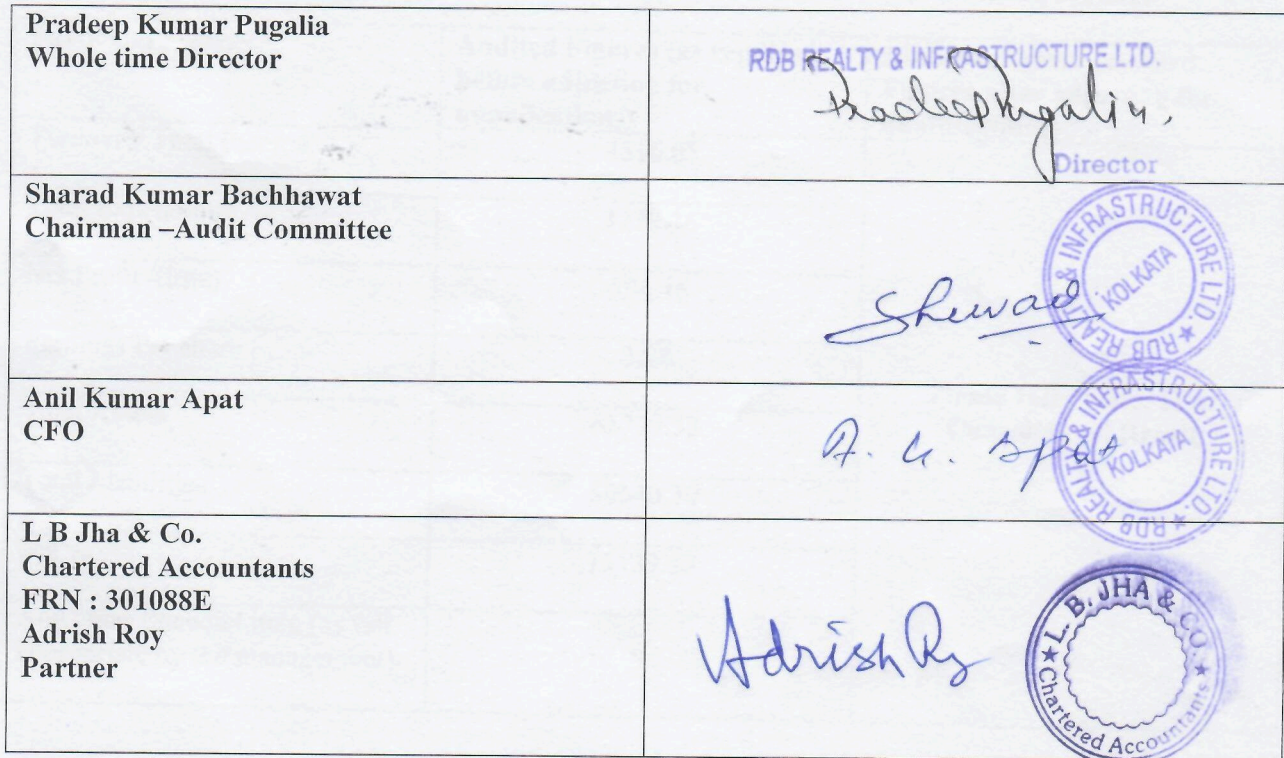 Pradeep Kumar Pugalia
Whole time Director
RDB REALTY & INFRASTRUCTURE LTD.
Pradeep Pugalia.
Director
Sharad Kumar Bachhawat
Chairman –Audit Committee
RDB REALTY & INFRASTRUCTURE LTD ★
KOLKATA
Anil Kumar Apat
CFO
A. K. Apat
RDB REALTY & INFRASTRUCTURE LTD ★
KOLKATA
L B Jha & Co.
Chartered Accountants
FRN : 301088E
Adrish Roy
Partner
Adrish Roy
★ L. B. JHA & CO. ★
Chartered Accountants